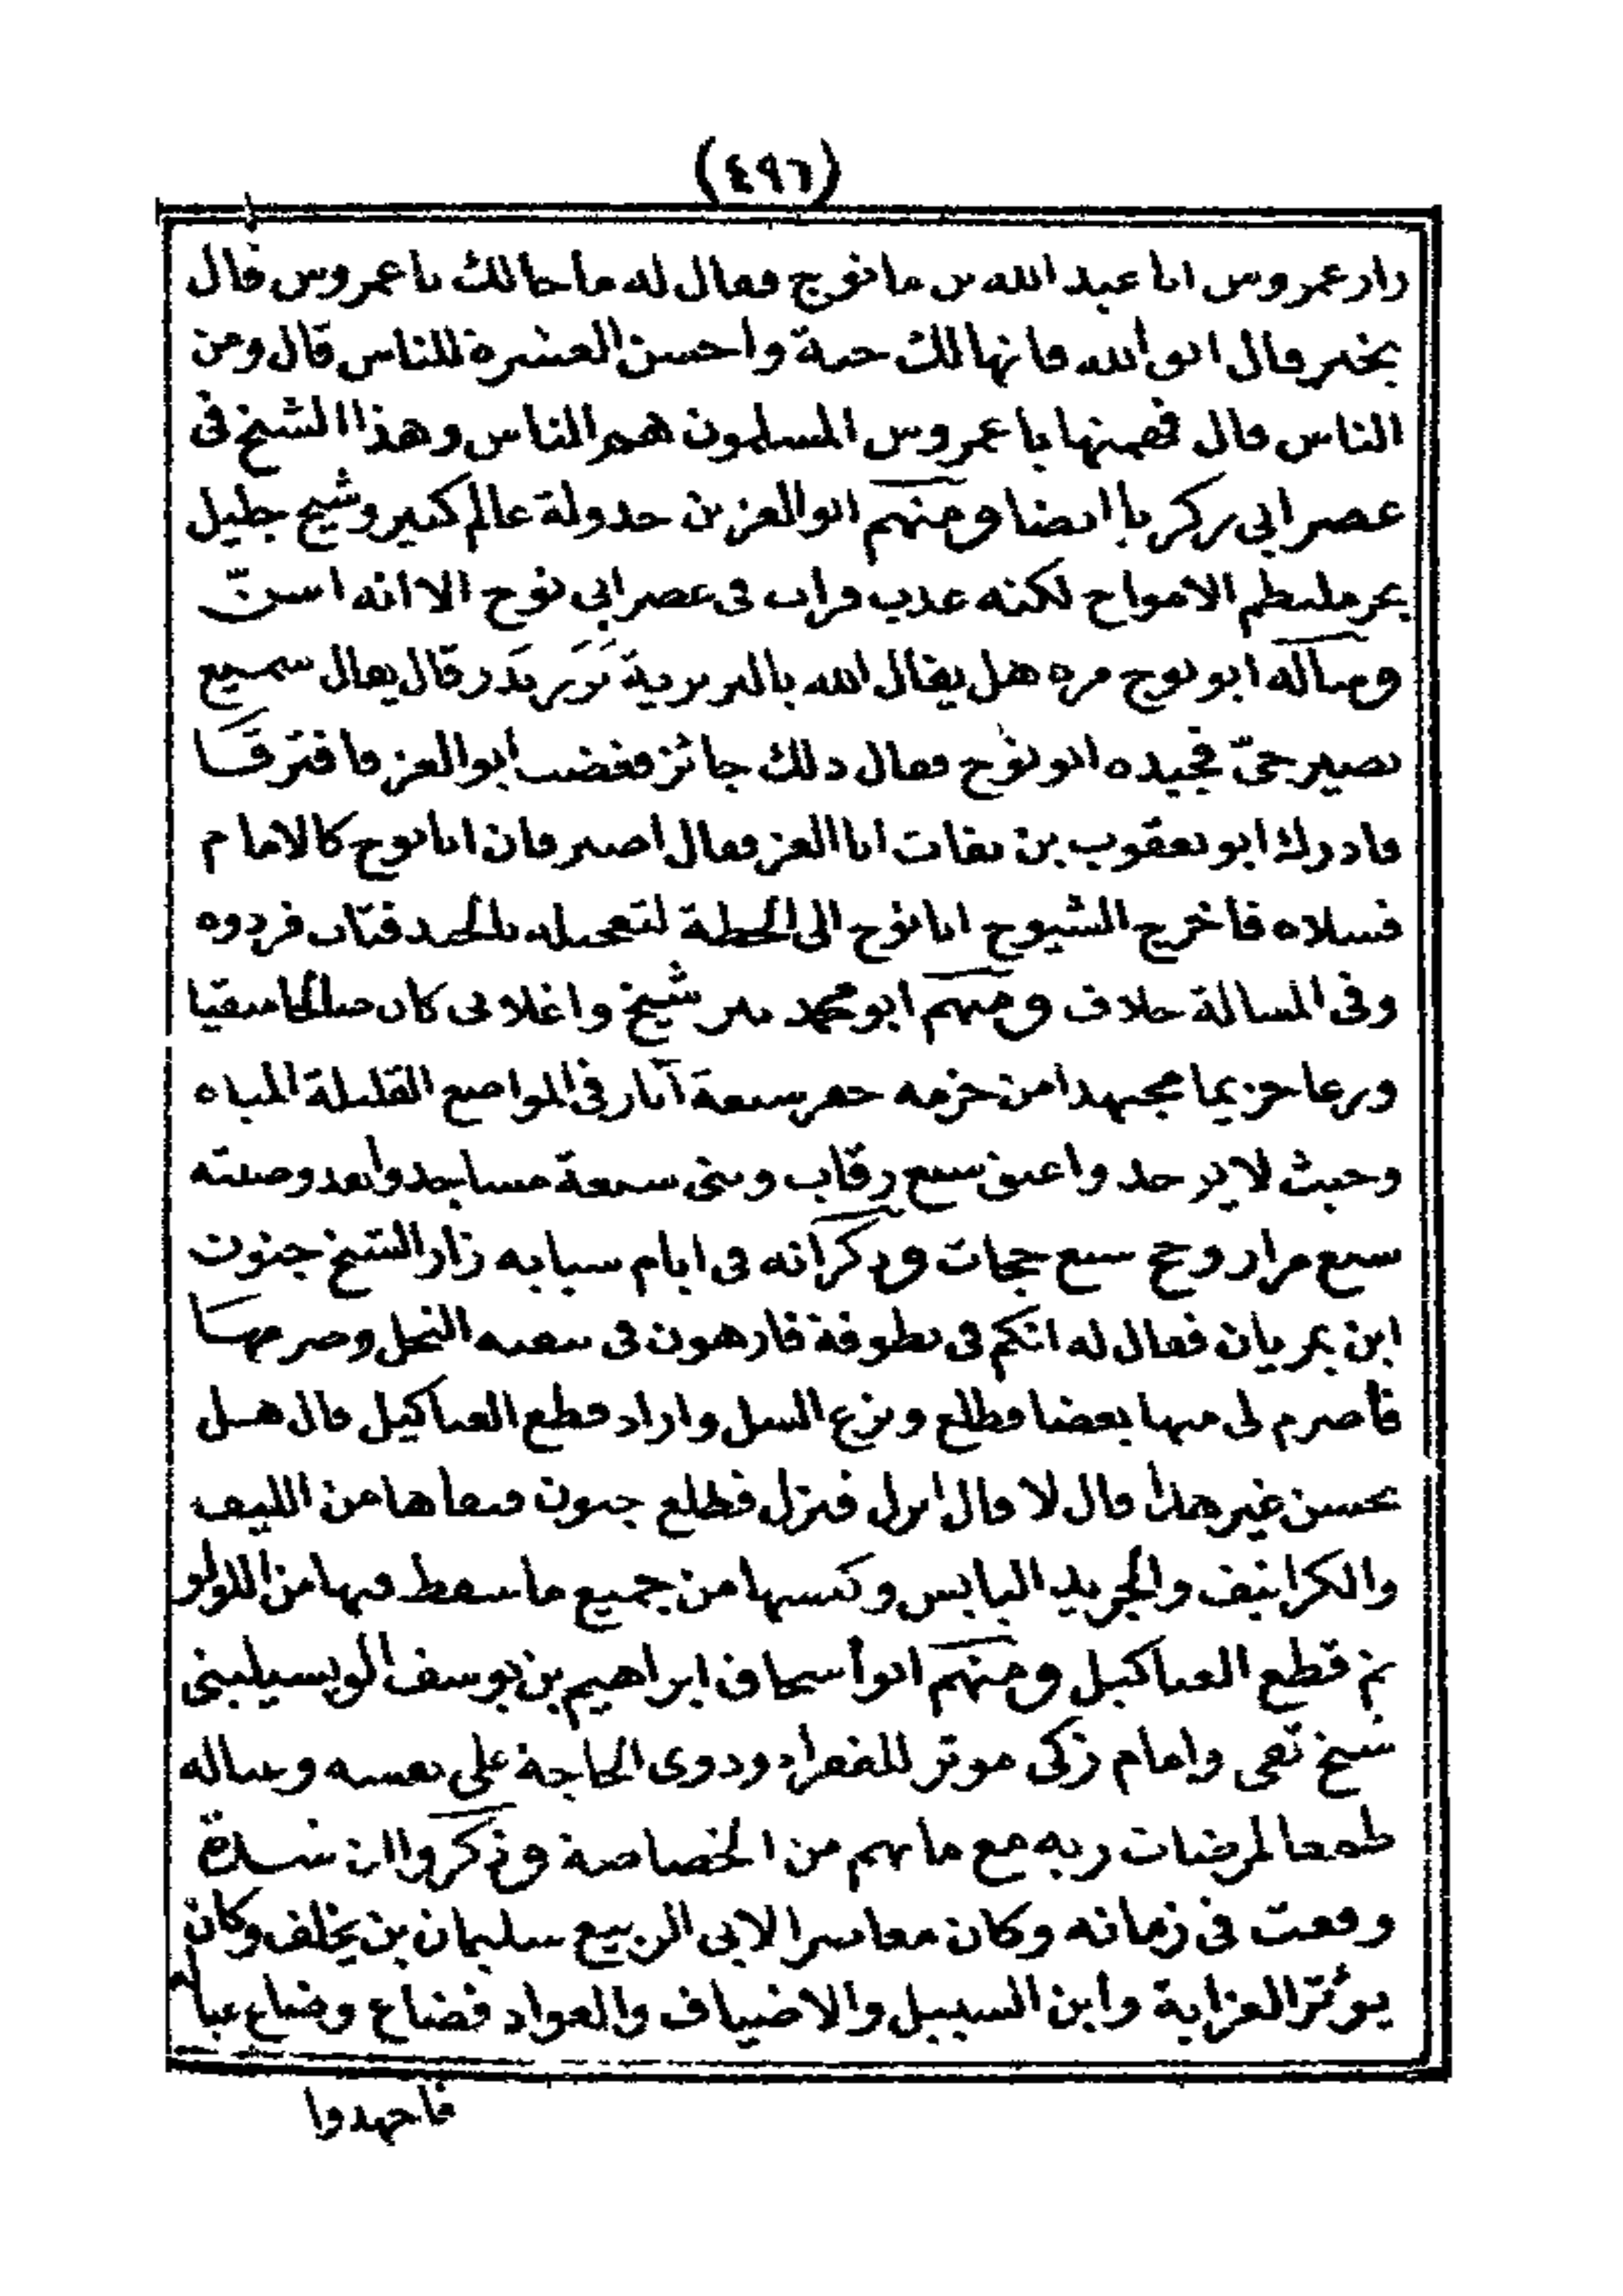 (٤٩٦)
زار عمروس ابا عبد الله بن مانوج فقال له ما حالك يا عمروس قال
بخير قال ابو الله فانها لك حبة واحسن العشرة للناس قال ومن
الناس قال فهمنها يا عمروس المسلمون هم الناس وهذا الشيخ في
عصر ابي زكريا ايضا ومنهم ابو العز بن حدولة عالم كبير وشيخ جليل
بحر ملتطم الامواج لكنه عذب فرات في عصر ابي نوح الا انه اسنّ
وساله ابو نوح مرة هل يقال الله بالبربرية قال يقال سميع
بصير حيّ ابو نوح فقال ذلك جائز فغضب ابو العز فافترقا
فادرك ابو يعقوب بن نفات ابا العز فقال اصبر فان ابا نوح كالامام
فسلاه فاخرج الشيوخ ابا نوح الى الخطة فتاب فردوه
وفي المسالة خلاف ومنهم ابو محمد شيخ واغلاني كان صالحا متقيا
ورعا حزيما مجتهدا من حزمه حفر سبعة آبار في المواضع القليلة المياه
وحيث لا يوجد واعتق سبع رقاب وبنى سبعة مساجد وانفد وصيته
سبع مرار وحج سبع حجات وذكر انه في ايام شبابه زار الشيخ جنون
ابن يمريان فقال له انكم في نطوفة فارهون في سقيه النخل وصرمها
فأصرم لي منها بعضا فطلع ونزع السل واراد قطع العراكيل قال هل
تحسن غير هذا قال لا قال انزل فنزل فطلع جنون فنقاها من الليف
والكرانيف والجريد اليابس وكنسها من جميع ما سقط فيها من اللولو
ثم قطع العراكيل ومنهم ابو اسحاق ابراهيم بن يوسف الويسيليني
شيخ تقي وامام زكي موثر للفقراء وذوي الحاجة على نفسه وعياله
طمعا لمرضات ربه مع ما بهم من الخصاصة وذكروا ان شدة
وقعت في زمانه وكان معاصرا لابي الربيع سليمان بن يخلف وكان
يوثر العزابة وابن السبيل والاضياف والعواد فضاع وضاع عياله
فاجهدوا